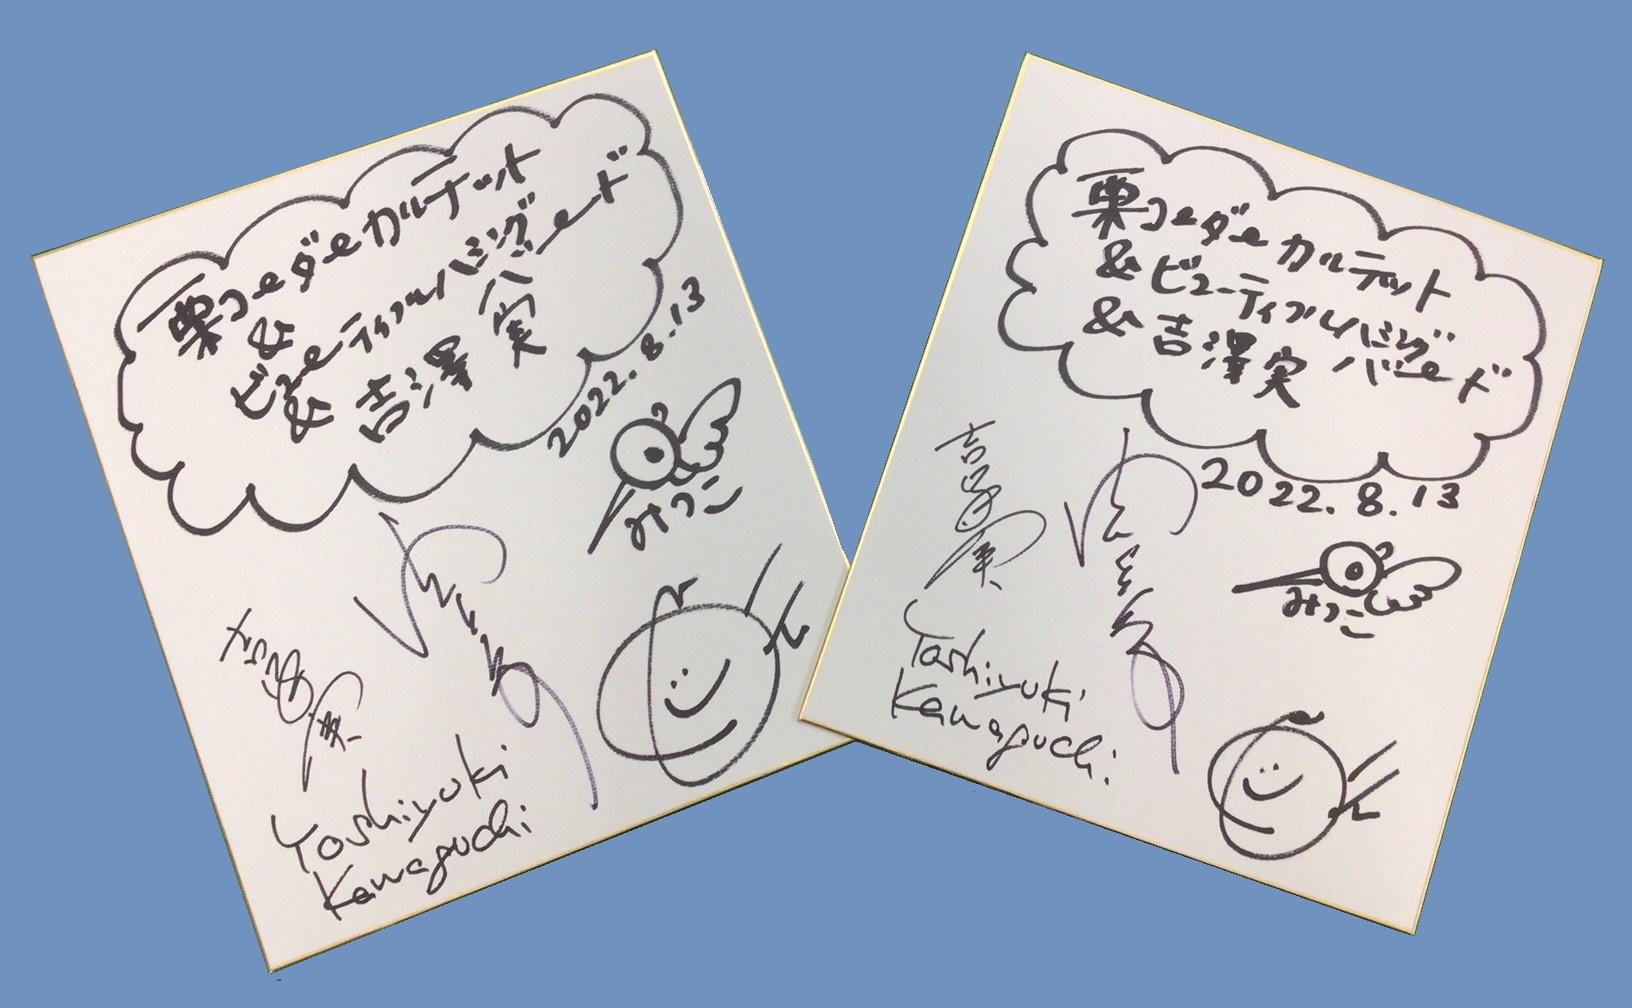 栗コーダーカルテット
&
ビューティフルハミング
バード
& 吉澤 実
2022.8.13
みつこ
吉澤実
Yoshiyuki
Kawaguchi
栗コーダーカルテット
& ビューティフルハミング
バード
& 吉澤実
2022.8.13
みつこ
吉澤実
Yoshiyuki
Kawaguchi